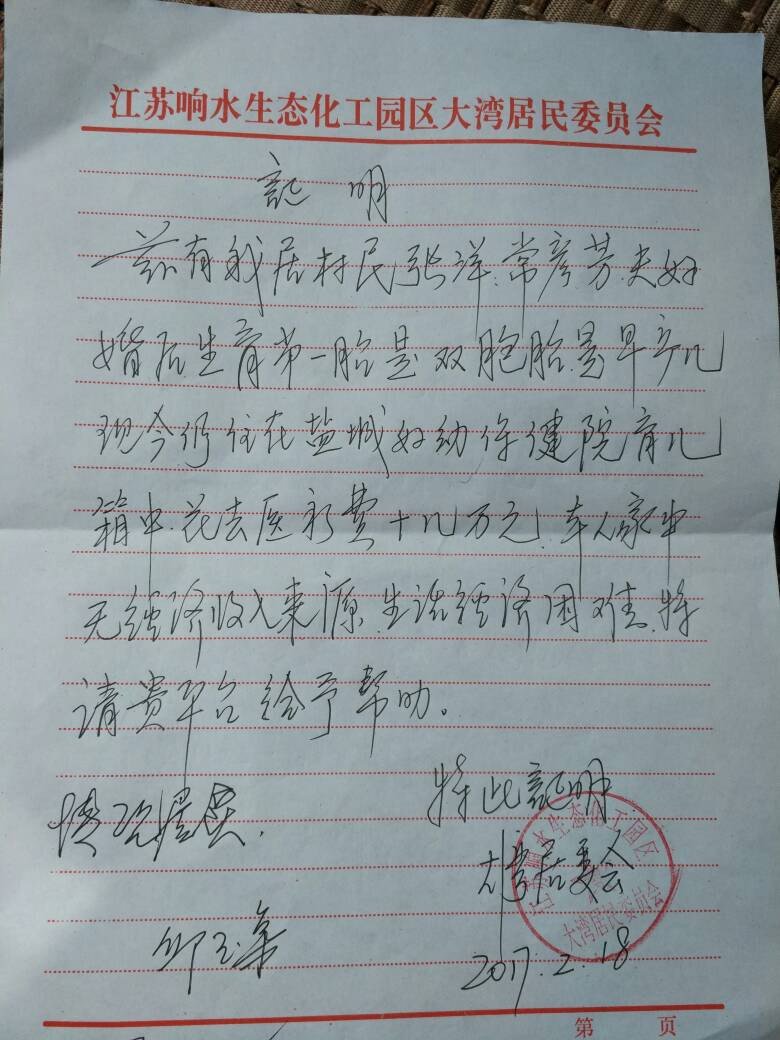 江苏响水生态化工园区大湾居民委员会
证明
兹有我居村民张洋、常彦芳夫妇
婚后生育第一胎是双胞胎、是早产儿
现今仍住在盐城妇幼保健院育儿
箱中、花去医疗费十几万元、本人家中
无经济收入来源、生活经济困难、特
请贵平台给予帮助。
特此证明
情况属实.
大湾居委会
邹玉
2017.2.18
江苏响水生态化工园区
大湾居民委员会
第 页